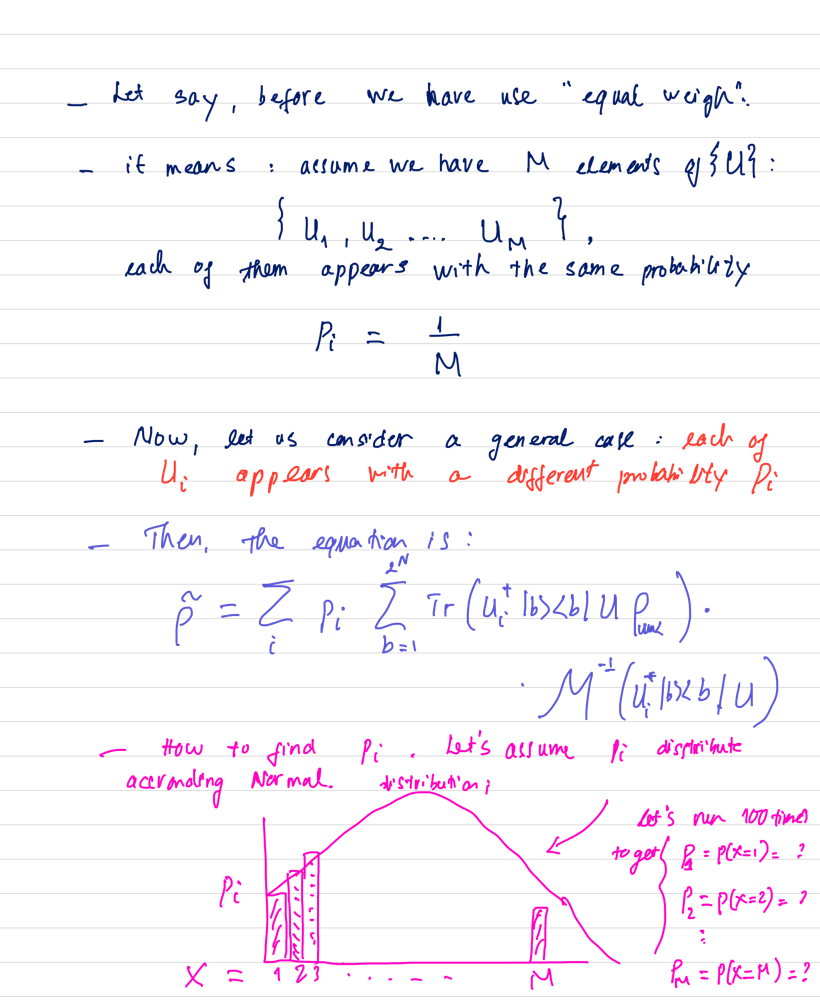 - Let say, before we have use "equal weigh".
- it means : assume we have M elements of {U} :
{ U₁ , U₂ .... U_M } ,
each of them appears with the same probability
P_i = 1/M
- Now, let us consider a general case : each of
U_i appears with a different probability P_i
- Then, the equation is :
ρ̃ = Σ_i P_i Σ_{b=1}^{2^N} Tr ( U_i^† |b><b| U ρ_unk ) .
. M^{-1} ( U_i^† |b><b| U )
- How to find P_i . Let's assume P_i distribute
according Normal. distribution ;
Let's run 100 times
to get { P_1 = P(X=1) = ?
P_2 = P(X=2) = ?
⋮
P_M = P(X=M) = ?
P_i
X = 1 2 3 . . . . - - - M